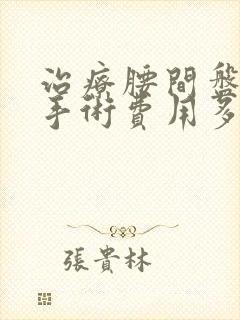 治療腰間盤
手術費用多
張貴林